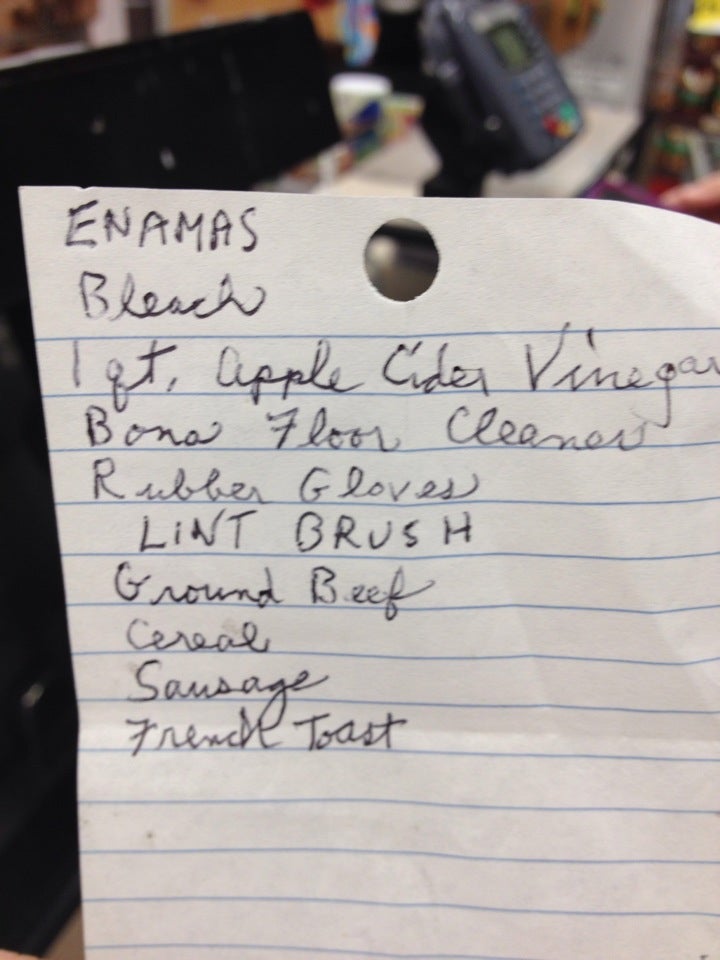 ENAMAS
Bleach
1 qt. Apple Cider Vinegar
Bona Floor Cleaner
Rubber Gloves
LiNT BRUSH
Ground Beef
Cereal
Sausage
French Toast